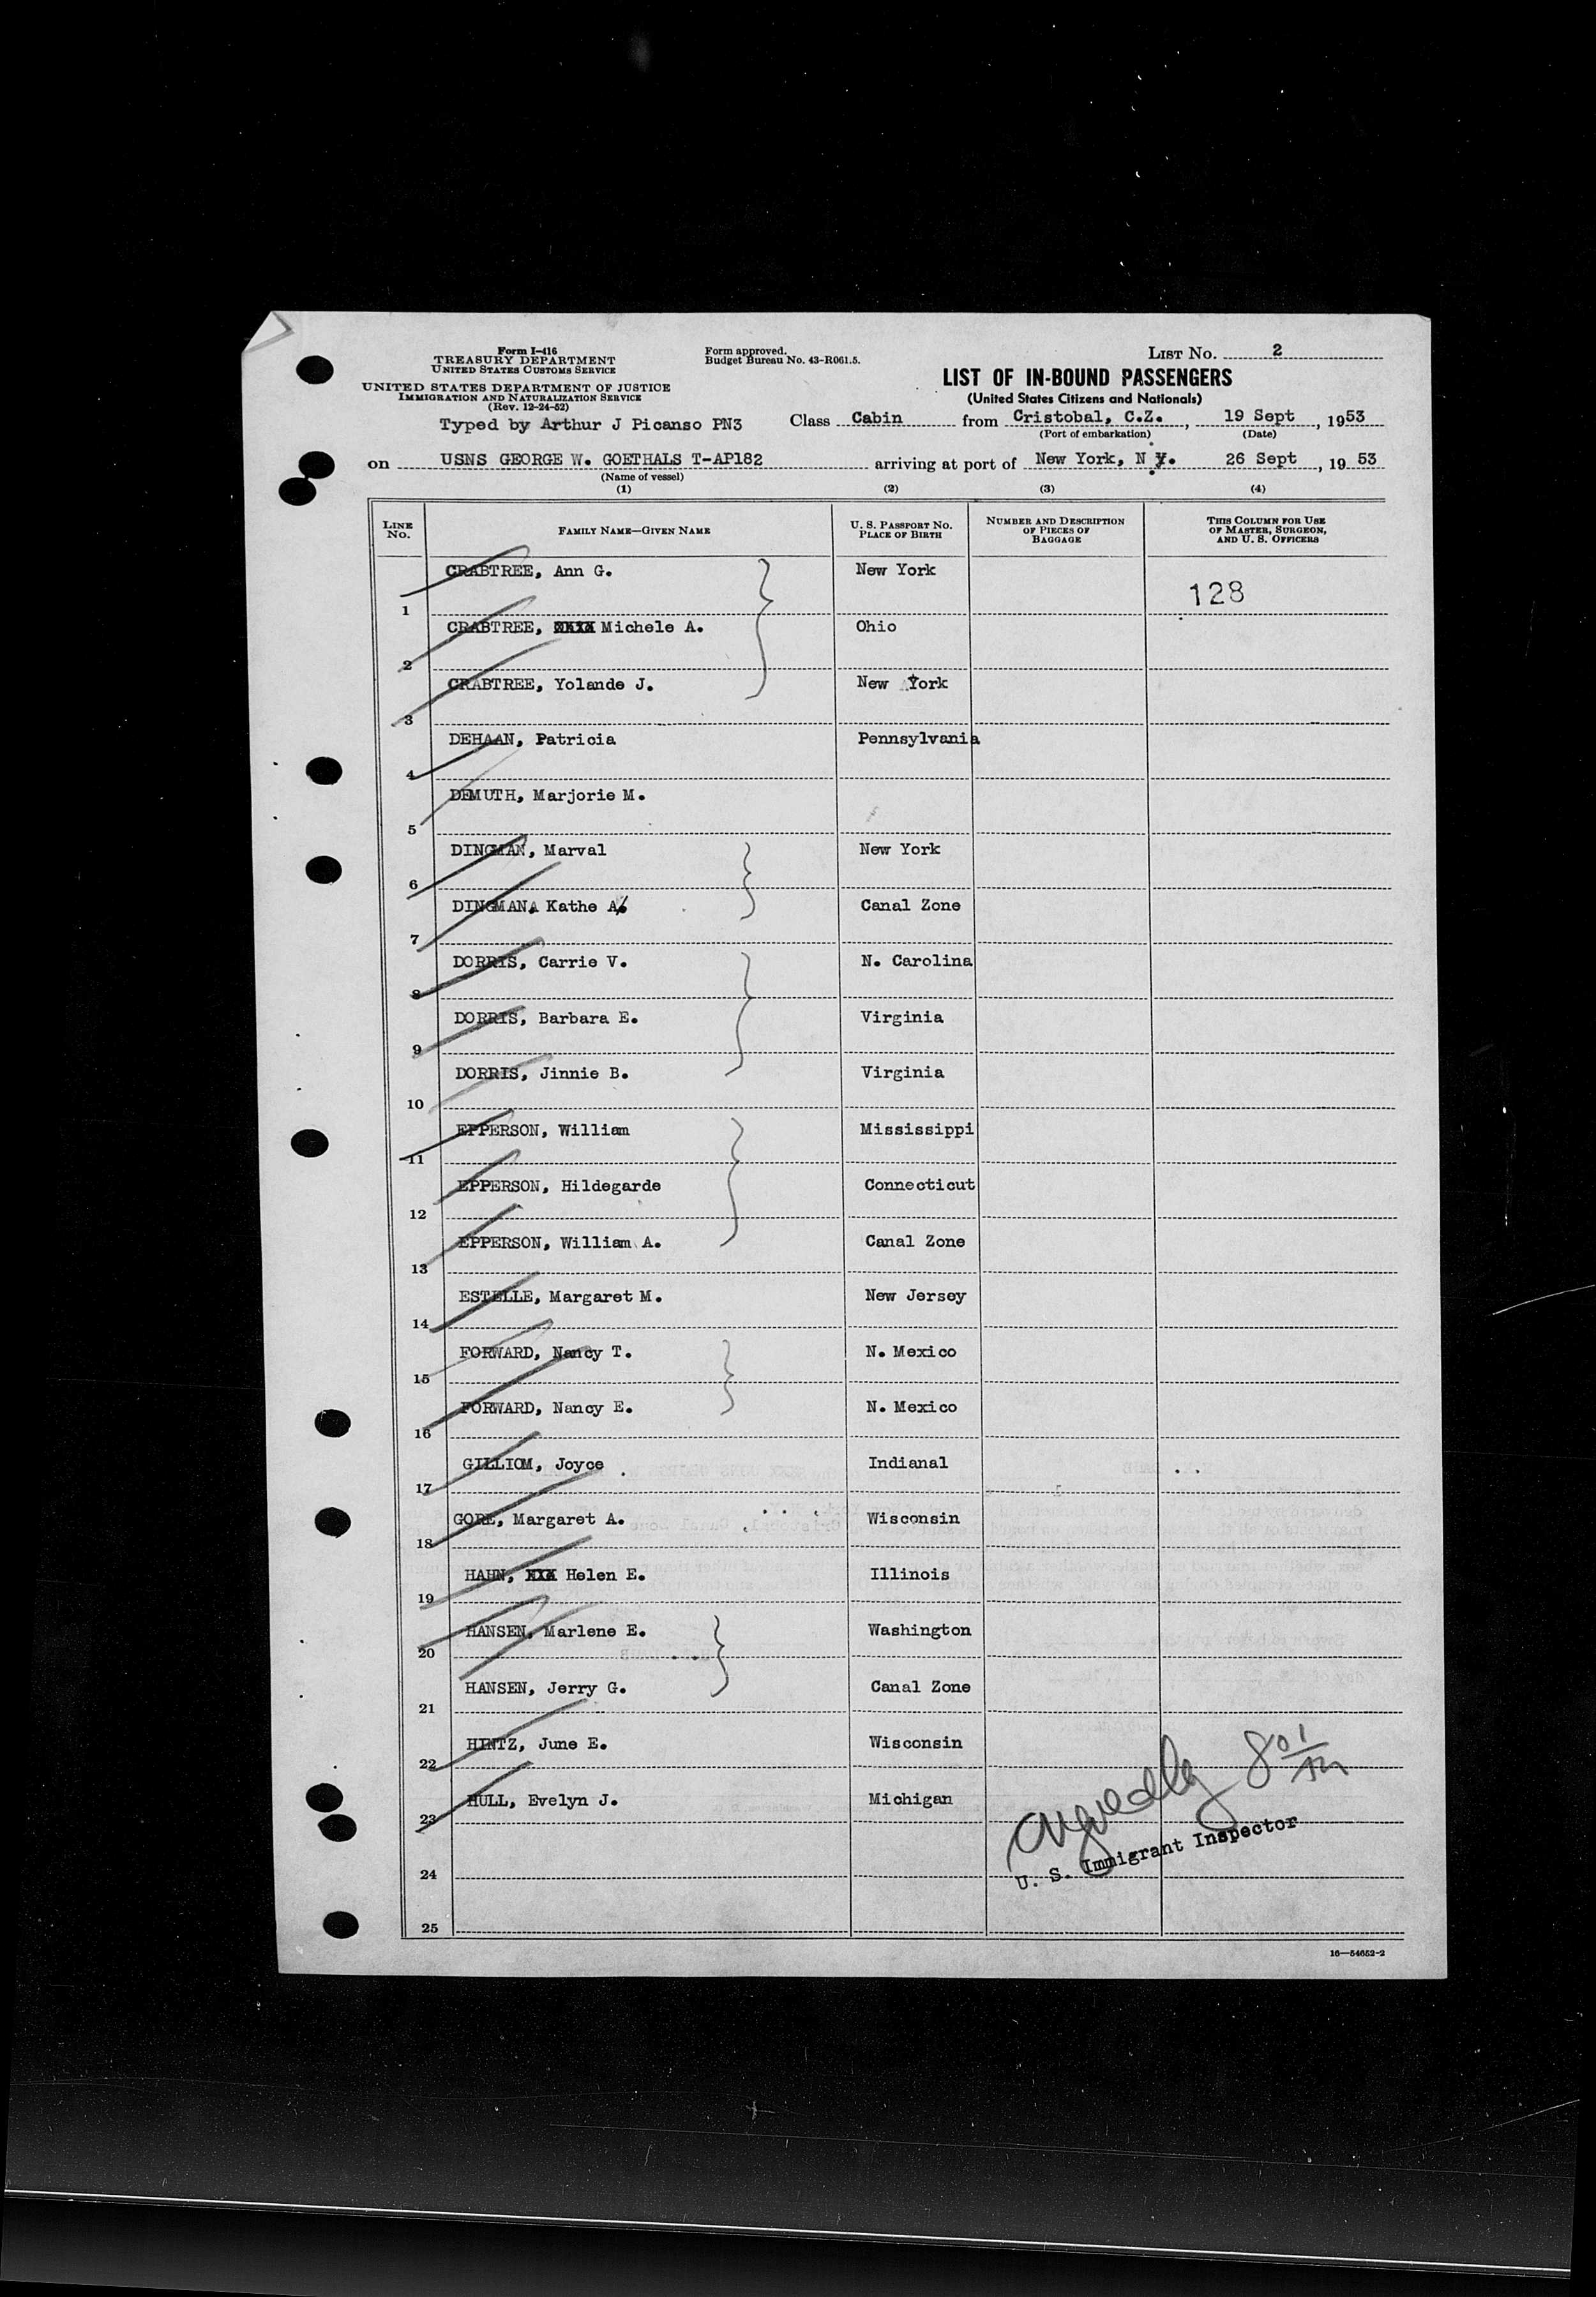 Form I-416
TREASURY DEPARTMENT
UNITED STATES CUSTOMS SERVICE
UNITED STATES DEPARTMENT OF JUSTICE
IMMIGRATION AND NATURALIZATION SERVICE
(Rev. 12-24-52)
Typed by Arthur J Picanso PN3
Form approved.
Budget Bureau No. 43-R061.5.
LIST NO. 2
LIST OF IN-BOUND PASSENGERS
(United States Citizens and Nationals)
Class Cabin from Cristobal, C.Z., 19 Sept, 1953
(Port of embarkation) (Date)
on USNS GEORGE W. GOETHALS T-AP182 arriving at port of New York, N Y. 26 Sept, 1953
(Name of vessel)
(1) (2) (3) (4)
LINE NO. FAMILY NAME—GIVEN NAME U. S. PASSPORT NO. PLACE OF BIRTH NUMBER AND DESCRIPTION OF PIECES OF BAGGAGE THIS COLUMN FOR USE OF MASTER, SURGEON, AND U. S. OFFICERS
1 CRABTREE, Ann G. New York 128
2 CRABTREE, Michele A. Ohio
3 CRABTREE, Yolande J. New York
4 DEHAAN, Patricia Pennsylvania
5 DEMUTH, Marjorie M.
6 DINGMAN, Marval New York
7 DINGMAN, Kathe A. Canal Zone
8 DORRIS, Carrie V. N. Carolina
9 DORRIS, Barbara E. Virginia
10 DORRIS, Jinnie B. Virginia
11 EPPERSON, William Mississippi
12 EPPERSON, Hildegarde Connecticut
13 EPPERSON, William A. Canal Zone
14 ESTELLE, Margaret M. New Jersey
15 FORWARD, Nancy T. N. Mexico
16 FORWARD, Nancy E. N. Mexico
17 GILLIOM, Joyce Indianal
18 GORE, Margaret A. Wisconsin
19 HAHN, XXX Helen E. Illinois
20 HANSEN, Marlene E. Washington
21 HANSEN, Jerry G. Canal Zone
22 HINTZ, June E. Wisconsin
23 HULL, Evelyn J. Michigan
U. S. Immigrant Inspector
24
25
16—54652-2